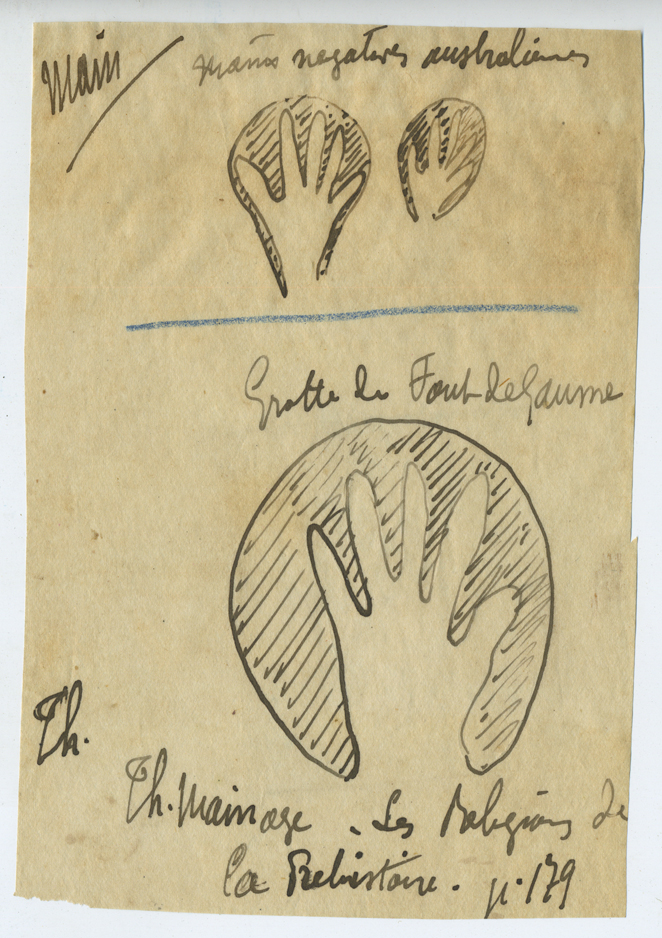 Main
Mains négatives australiennes
Grotte de Font-de-Gaume
Th.
Th. Mainage. Les Religions de
la Préhistoire. p. 179